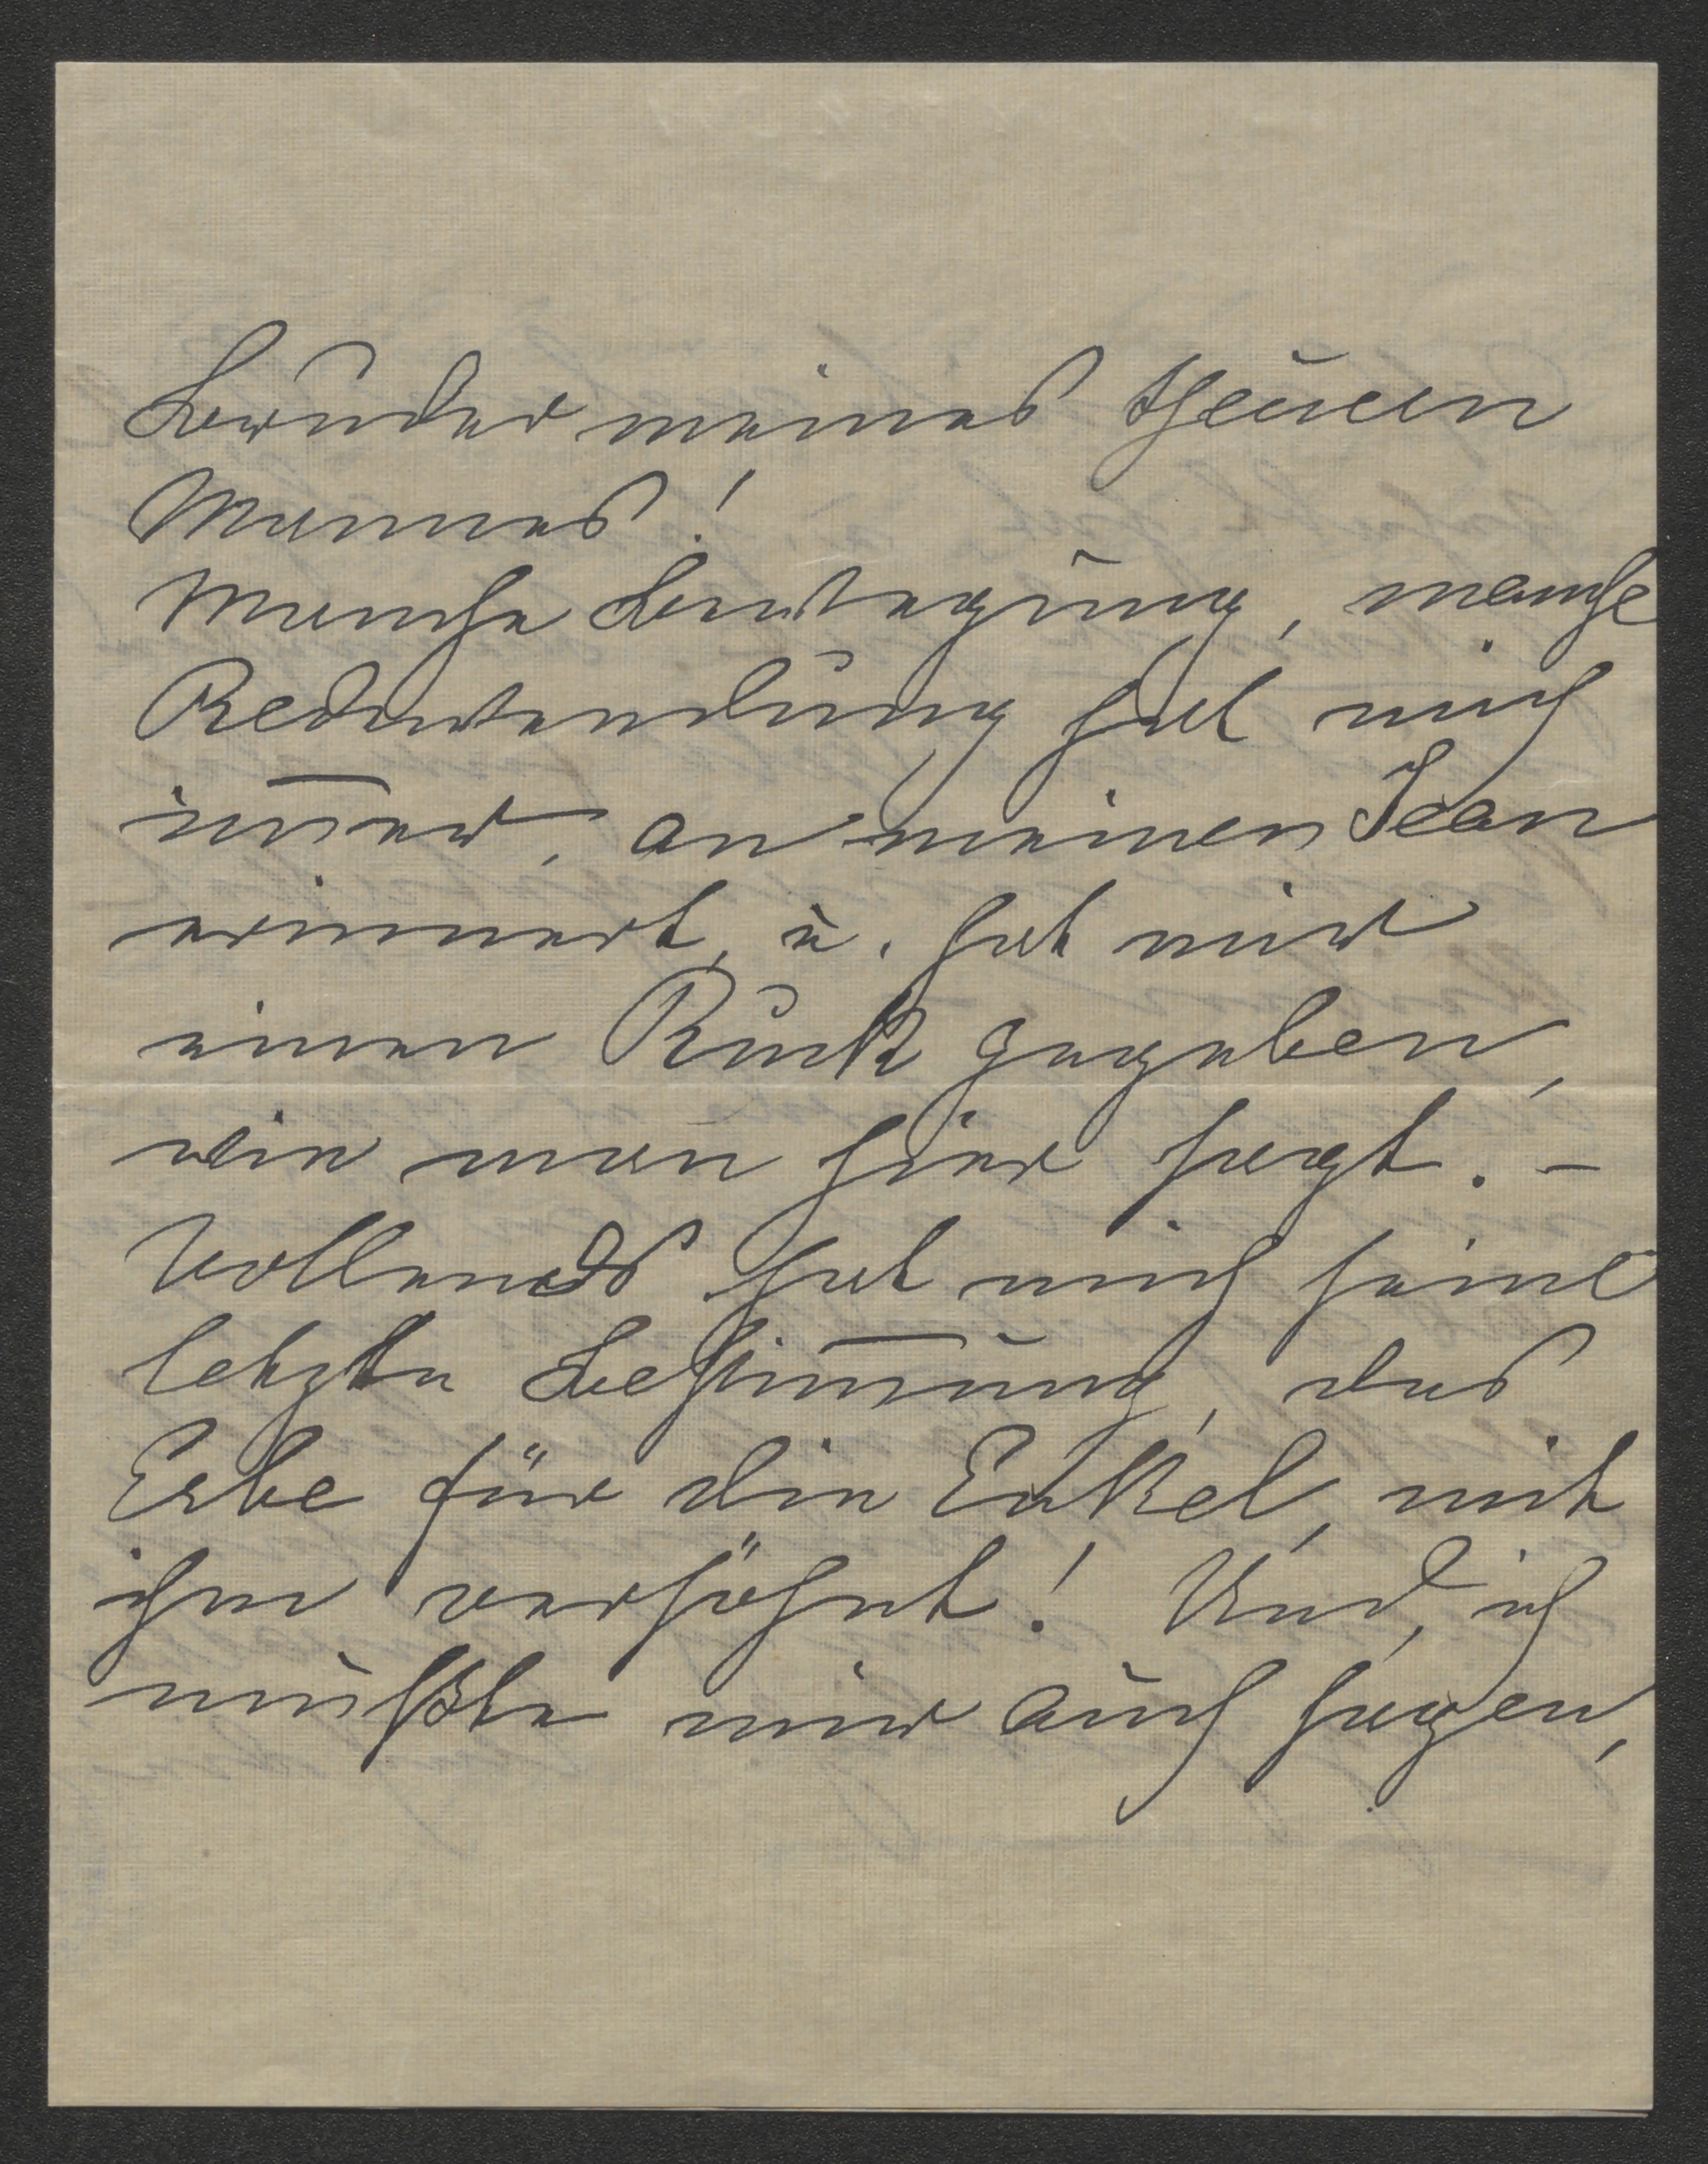 Bruder meines theuern
Mannes!
Manche Bewegung, manche
Redewendung hat mich
im̅er, an meinen Jean
erinnert, u. hat mir
einen Ruck gegeben,
wie man hier sagt. –
Vollends hat mich seine
letzte Bestim̅ung, das
Erbe für die Enkel, mit
ihm versöhnt! Und, ich
mußte mir auch sagen,